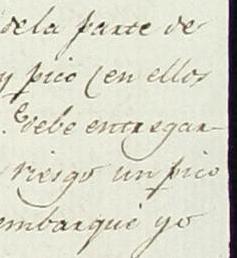 dela parte de
y pico (en ellos
debe entregar
riesgo un pico
embarque yo